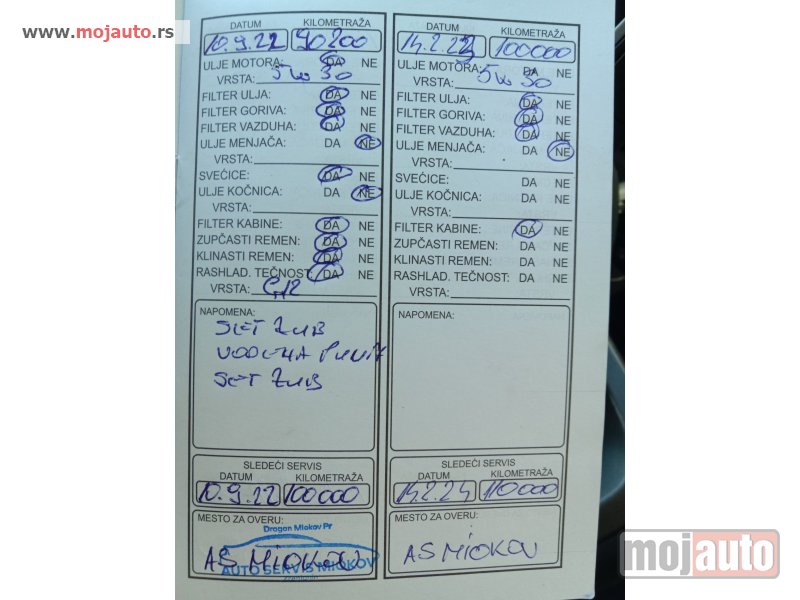 www.mojauto.rs
DATUM KILOMETRAŽA
10.9.22 90200
ULJE MOTORA: DA NE
VRSTA: 5w30
FILTER ULJA: DA NE
FILTER GORIVA: DA NE
FILTER VAZDUHA: DA NE
ULJE MENJAČA: DA NE
VRSTA:
SVEĆICE: DA NE
ULJE KOČNICA: DA NE
VRSTA:
FILTER KABINE: DA NE
ZUPČASTI REMEN: DA NE
KLINASTI REMEN: DA NE
RASHLAD. TEČNOST: DA NE
VRSTA: G12
NAPOMENA:
SET ZUB
VODENA PUMPA
SET ZUB
SLEDEĆI SERVIS
DATUM KILOMETRAŽA
10.9.22 100000
MESTO ZA OVERU:
Dragan Miokov Pr
AS MIOKOV
AUTO SERVIS MIOKOV
DATUM KILOMETRAŽA
14.2.23 100000
ULJE MOTORA: DA NE
VRSTA: 5w30
FILTER ULJA: DA NE
FILTER GORIVA: DA NE
FILTER VAZDUHA: DA NE
ULJE MENJAČA: DA NE
VRSTA:
SVEĆICE: DA NE
ULJE KOČNICA: DA NE
VRSTA:
FILTER KABINE: DA NE
ZUPČASTI REMEN: DA NE
KLINASTI REMEN: DA NE
RASHLAD. TEČNOST: DA NE
VRSTA:
NAPOMENA:
SLEDEĆI SERVIS
DATUM KILOMETRAŽA
14.2.24 110000
MESTO ZA OVERU:
AS MIOKOV
mojauto